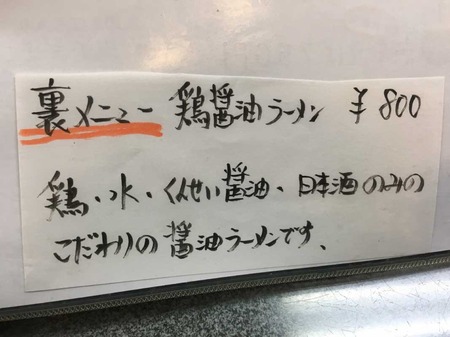 裏メニュー 鶏醤油ラーメン ¥800
鶏、水、くんせい醤油、日本酒のみの
こだわりの醤油ラーメンです、